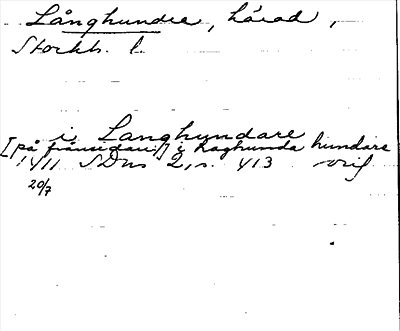 Långhundra, härad,
Stockh. l.
i Langhundare
[på frånsidan:] i Laghunda hundare
1411 SDns 2, s. 413 orig
20/7